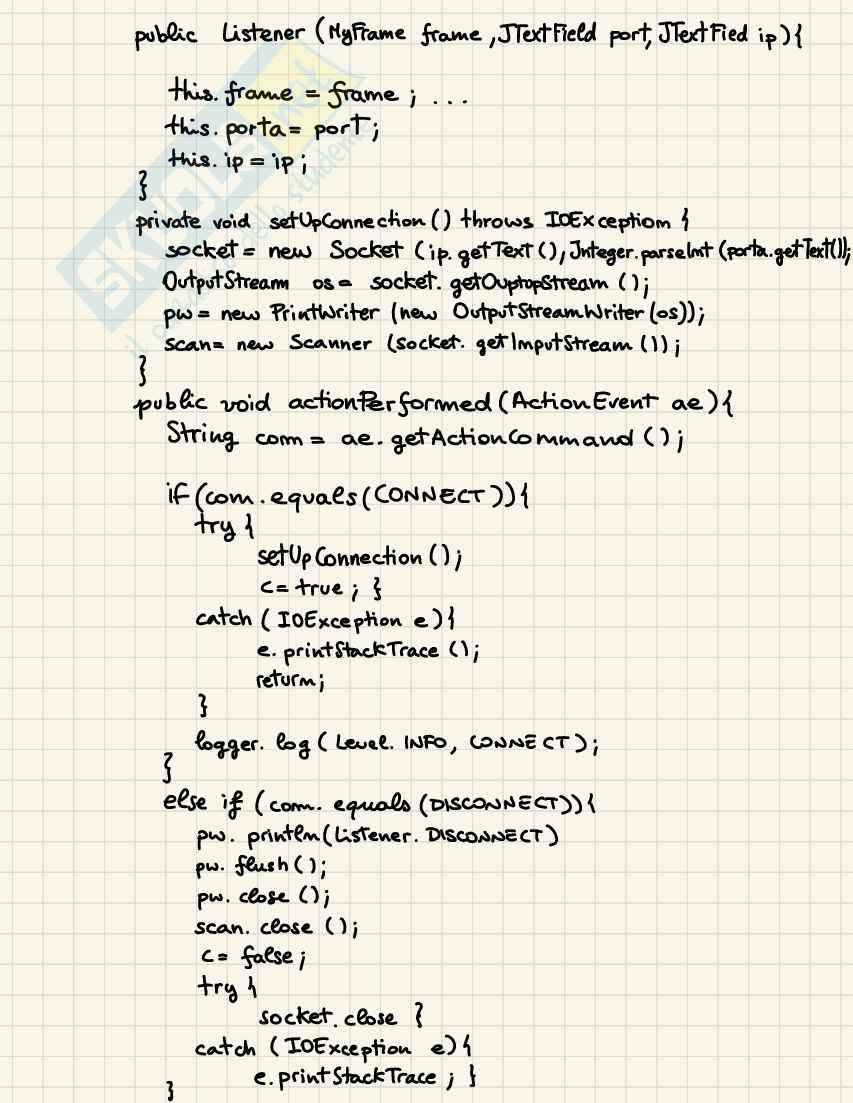 public Listener (MyFrame frame, JTextField port, JTextFied ip){
this.frame = frame ; ...
this.porta = port;
this.ip = ip;
}
private void setUpConnection() throws IOException {
socket = new Socket (ip.getText(), Integer.parseInt (porta.getText());
OutputStream os = socket.getOuptopStream ();
pw = new PrintWriter (new OutputStreamWriter(os));
scan = new Scanner (socket. getImputStream ());
}
public void actionPerformed(ActionEvent ae){
String com = ae.getActionCommand ();
if (com.equals(CONNECT)){
try {
setUpConnection ();
c = true ; }
catch ( IOException e){
e. printStackTrace ();
return;
}
logger. log ( Level. INFO, CONNECT );
}
else if (com. equals (DISCONNECT)){
pw. println(Listener. DISCONNECT)
pw. flush();
pw. close ();
scan. close ();
c = false;
try {
socket.close }
catch (IOException e){
e.printStackTrace ; }
}
SKUOLA.net